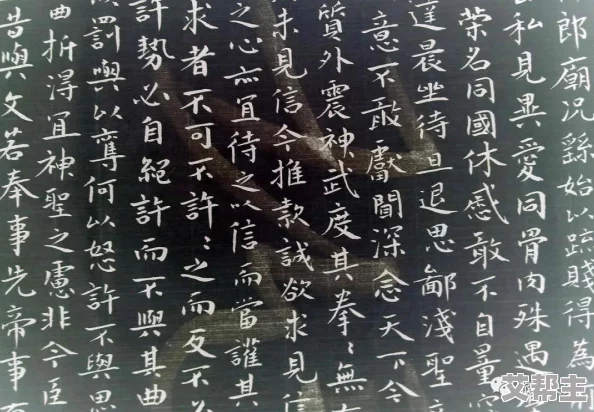 郎廟况繇始以疏賤得為
私見異愛同骨肉殊遇
榮名同國休慼敢不自量
達晨坐待旦退思鄙淺聖
意不敢獻聞深念天下今
質外震神武度其拳〻無
未見信今推款誠欲求見信
之心亦宜待之以信而當護其
求者不可不許〻之而反不必
許勢必自絕許而不與其曲
罰與以奪何以怒許不與思
曲折得宜神聖之慮非今臣
昔與文若奉事先帝事有
艾帮主